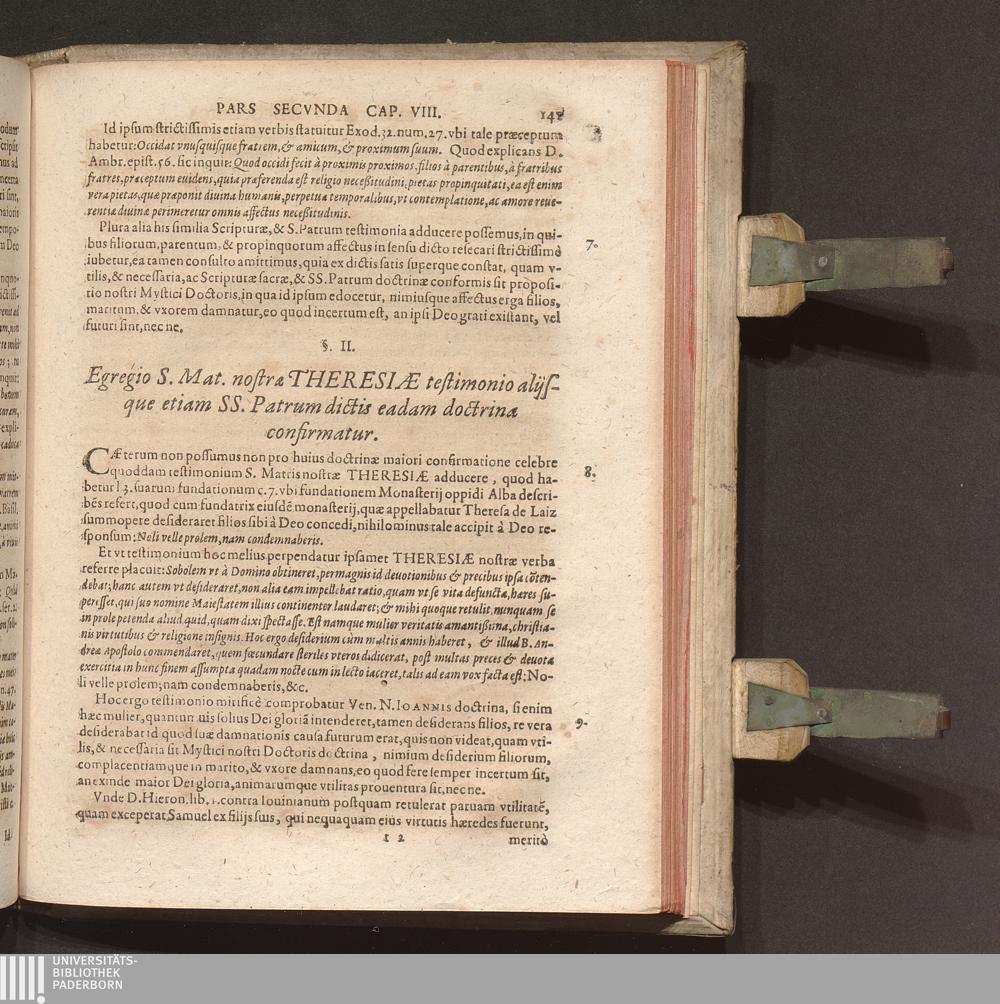 PARS SECVNDA CAP. VIII.
Id ipsum strictissimis etiam verbis statuitur Exod. 32. num. 27. vbi tale præceptum
habetur: Occidat vnusquisque fratrem, & amicum, & proximum suum. Quod explicans D.
Ambr. epist. 56. sic inquit: Quod occidi fecit à proximis proximos, filios à parentibus, à fratribus
fratres, præceptum euidens, quia præferenda est religio necessitudini, pietas propinquitati, ea est enim
vera pietas, quæ præponit diuina humanis, perpetua temporalibus, vt contemplatione, ac amore reue-
rentiæ diuinæ perimeretur omnis affectus necessitudinis.
Plura alia his similia Scripturæ, & S. Patrum testimonia adducere possemus, in qui-
7.
bus filiorum, parentum, & propinquorum affectus in sensu dicto resecari strictissimè
iubetur, ea tamen consulto amittimus, quia ex dictis satis superque constat, quam v-
tilis, & necessaria, ac Scripturæ sacræ, & SS. Patrum doctrinæ conformis sit proposi-
tio nostri Mystici Doctoris, in qua id ipsum edocetur, nimiusque affectus erga filios,
maritum, & vxorem damnatur, eo quod incertum est, an ipsi Deo grati existant, vel
futuri sint, nec ne.
§. II.
Egregio S. Mat. nostræ THERESIÆ testimonio alijs-
que etiam SS. Patrum dictis eadam doctrina
confirmatur.
CÆterum non possumus non pro huius doctrinæ maiori confirmatione celebre
8.
quoddam testimonium S. Matris nostræ THERESIÆ adducere, quod ha-
betur l 3. suarum fundationum c. 7. vbi fundationem Monasterij oppidi Alba descri-
bēs refert, quod cum fundatrix eiusdē monasterij, quæ appellabatur Theresa de Laiz
summopere desideraret filios sibi à Deo concedi, nihilominus tale accipit à Deo re-
sponsum: Noli velle prolem, nam condemnaberis.
Et vt testimonium hoc melius perpendatur ipsamet THERESIÆ nostræ verba
referre placuit: Sobolem vt à Domino obtineret, permagnis id deuotionibus & precibus ipsa cōten-
debat; hanc autem vt desideraret, non alia eam impellebat ratio, quam vt se vita defuncta, hæres su-
peresset, qui suo nomine Maiestatem illius continenter laudaret; & mihi quoque retulit, nunquam se
in prole petenda aliud quid, quam dixi spectasse. Est namque mulier veritatis amantissima, christia-
nis virtutibus & religione insignis. Hoc ergo desiderium cùm multis annis haberet, & illud B. An-
dreæ Apostolo commendaret, quem fœcundare steriles vteros didicerat, post multas preces & deuota
exercitia in hunc finem assumpta quadam nocte cum in lecto iaceret, talis ad eam vox facta est; No-
li velle prolem; nam condemnaberis, &c.
Hoc ergo testimonio mirificè comprobatur Ven. N. IOANNIS doctrina, si enim
9.
hæc mulier, quantumuis solius Dei gloriā intenderet, tamen desiderans filios, re vera
desiderabat id quod suæ damnationis causa futurum erat, quis non videat, quam vti-
lis, & necessaria sit Mystici nostri Doctoris doctrina, nimium desiderium filiorum,
complacentiamque in marito, & vxore damnans, eo quod fere semper incertum sit,
an exinde maior Dei gloria, animarumque vtilitas prouentura sit, nec ne.
Vnde D. Hieron. lib. 1. contra Iouinianum postquam retulerat paruam vtilitatē,
quam exceperat Samuel ex filijs suis, qui nequaquam eius virtutis hæredes fuerunt,
meritò
UNIVERSITÄTS-
BIBLIOTHEK
PADERBORN